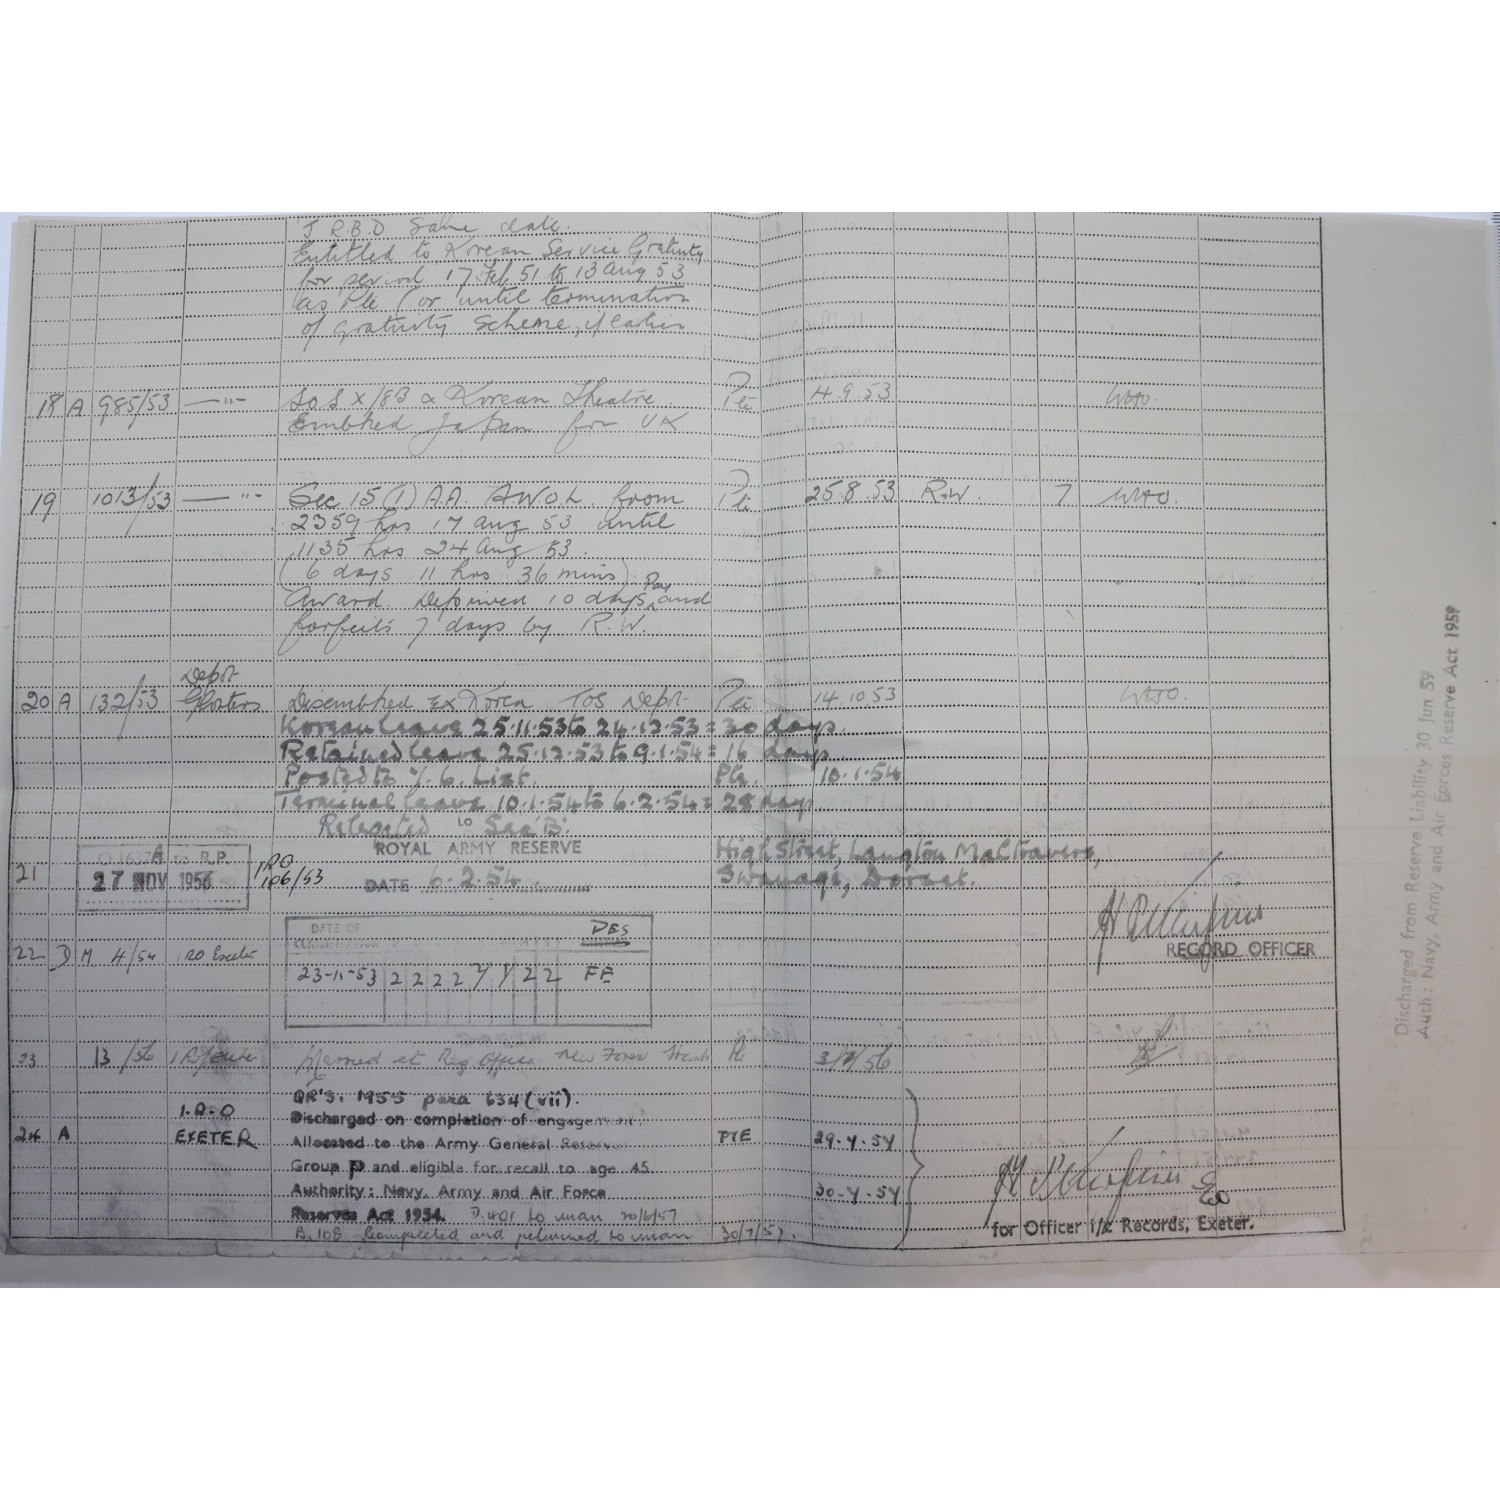 J R.B.D Same date.
Entitled to Korean Service Gratuity
for period 17 Feb 51 to 13 Aug 53
as Pte (or until termination
of gratuity scheme, if earlier
18 A 985/53 —"— SoS X/8B & Korean Theatre. Pte 4.9.53
Embked Japan for UK
19 1013/53 —"— Sec 15 (1) A.A. AWOL from Pte 25.8.53 R.W. 7
2359 hrs 17 Aug 53 until
1135 hrs 24 Aug 53.
(6 days 11 hrs 36 mins)
Award. Deprived 10 days Pay and
forfeits 7 days by R.W.
Depot
20 A 132/53 Glosters Disembked Ex Korea TOS Depot Pte 14.10.53
Korean leave 25.11.53 to 24.12.53 = 30 days.
Retained leave 25.12.53 to 9.1.54 = 16 days
Posted to Y. G. List. Pte. 10.1.54
Terminal leave 10.1.54 to 6.2.54 = 28 days
Relegated to Sec 'B'.
ROYAL ARMY RESERVE High Street, Langton Maltravers,
21 A to R.P. 27 NOV 1953 RO 106/53 DATE 6.2.54 Swanage, Dorset.
RECORD OFFICER
DATE OF DES
22 D M 4/54 RO Exeter 23-11-53 2 2 2 2 Y Y 2 2 FE
23 13/56 Married at Reg Office New Forest Hants Pte 3/ /56
QR's. 1955 para 634 (vii).
I.R.O Discharged on completion of engagement
24 A EXETER Allocated to the Army General Reserve PTE 29.4.54
Group P and eligible for recall to age 45
Authority: Navy, Army and Air Force 30.4.54
Reserves Act 1954. D.401 to man 20/6/57
B. 108 Completed and returned to man 30/7/57.
for Officer i/c Records, Exeter.
Discharged from Reserve Liability 30 Jun 59
Auth: Navy, Army and Air Forces Reserve Act 1959